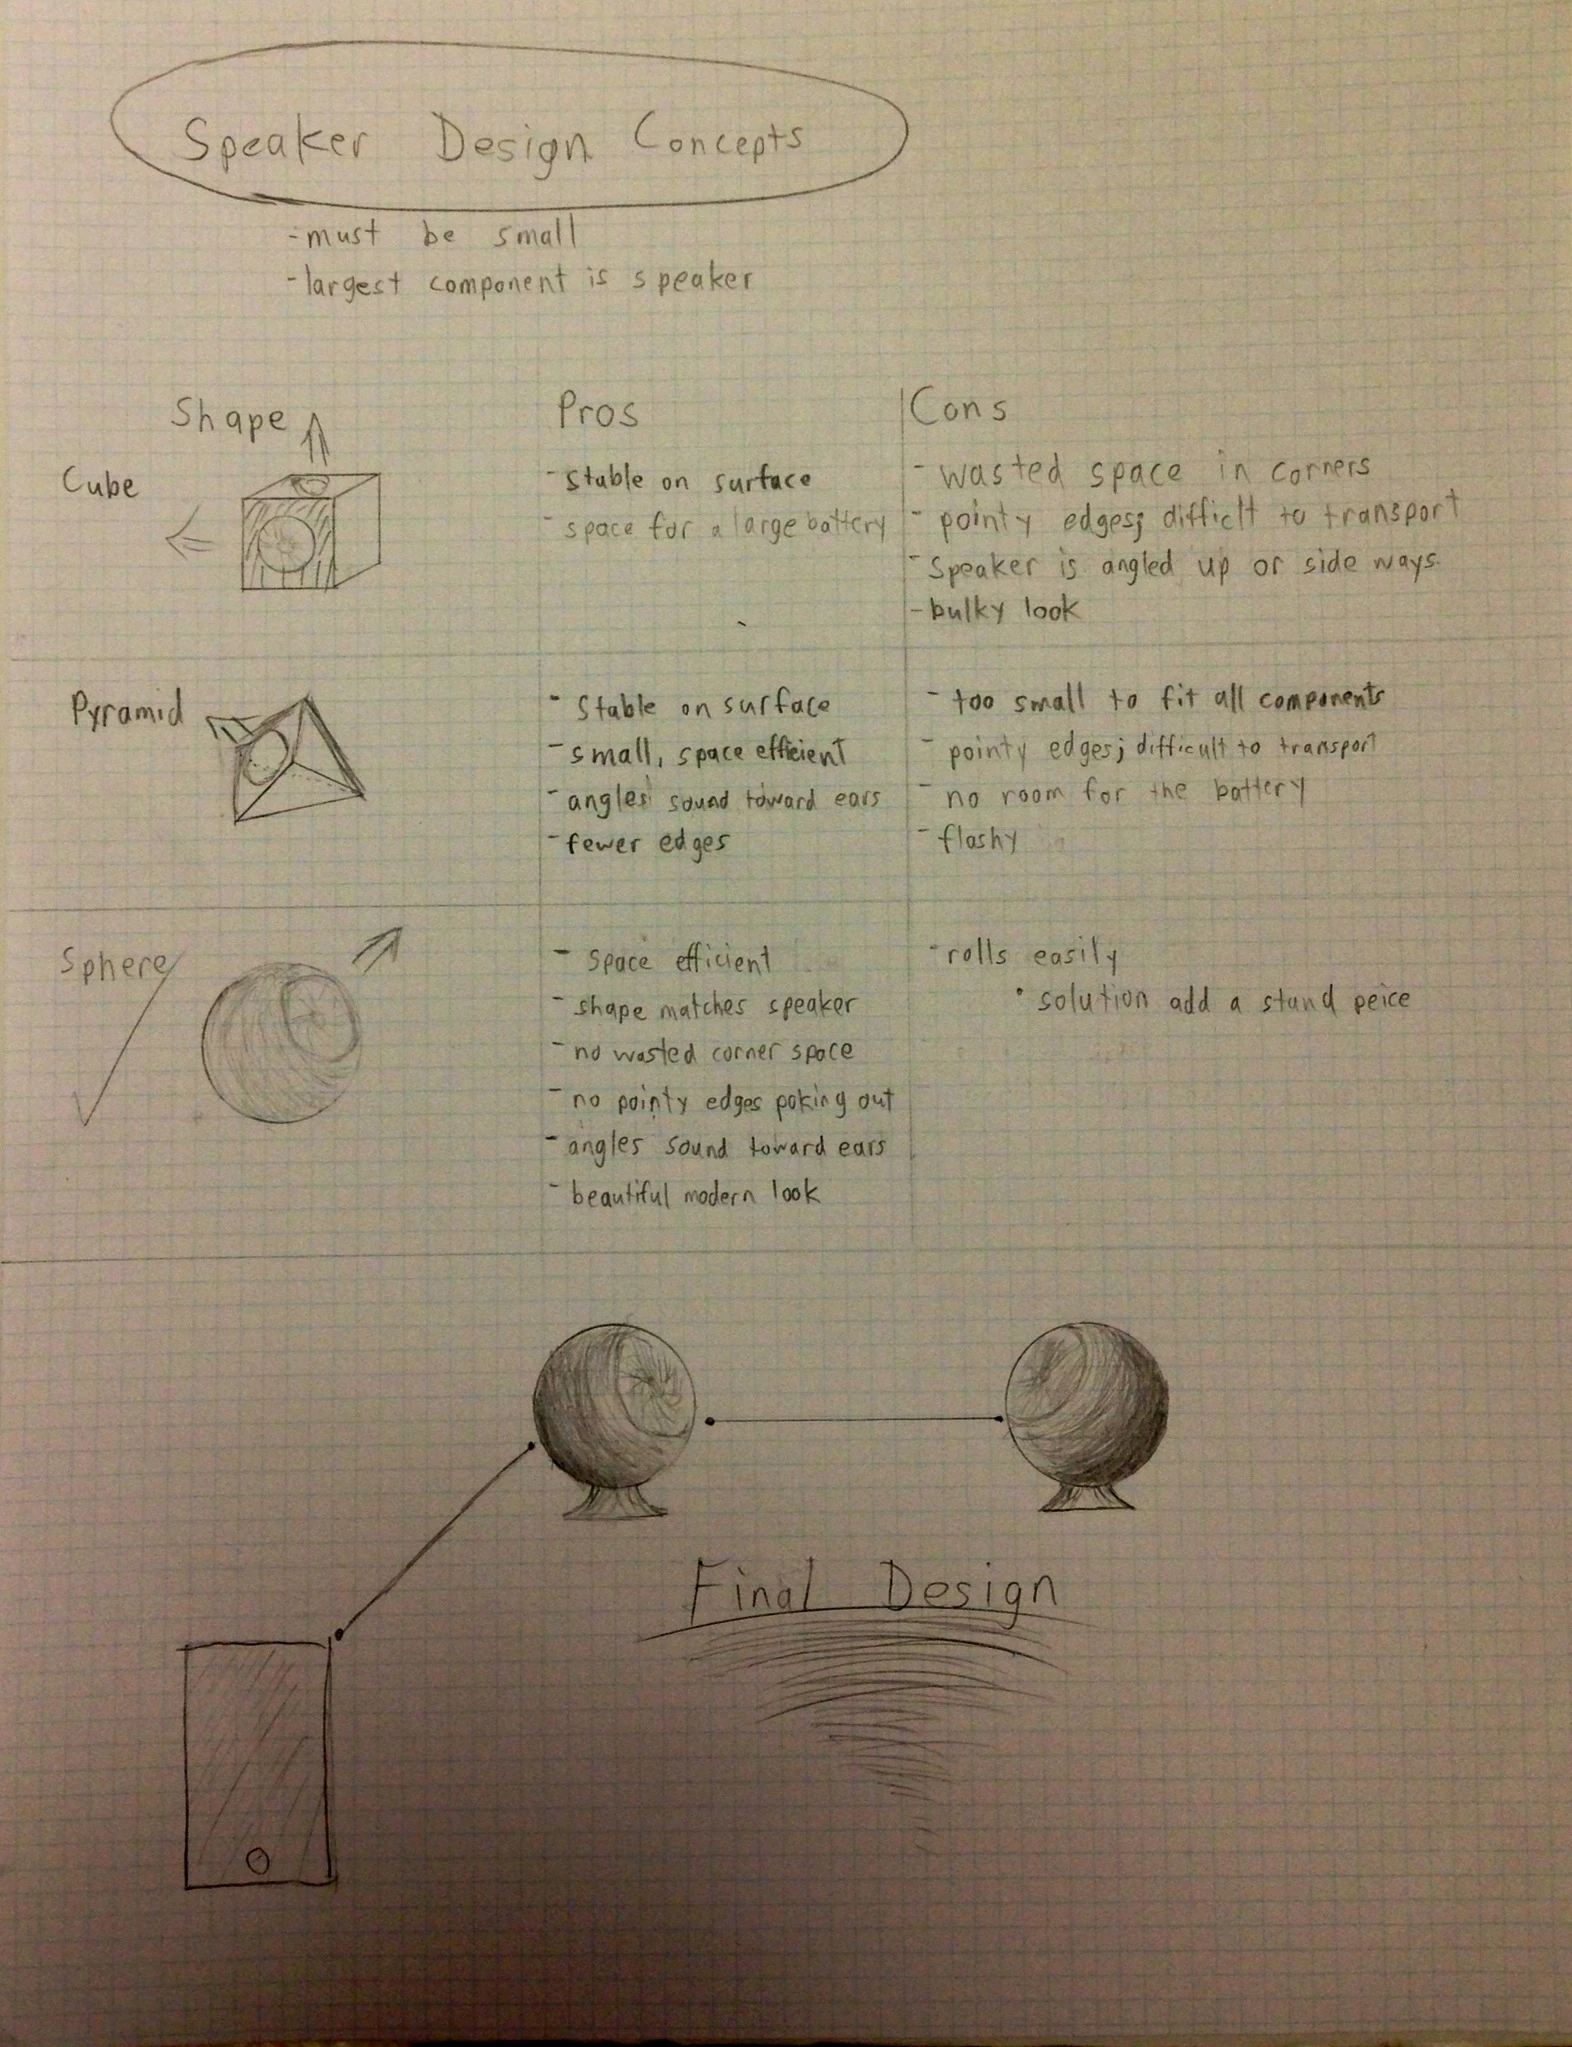 Speaker Design Concepts
- must be small
- largest component is speaker
Shape
Pros
Cons
Cube
- Stable on surface
- space for a large battery
- wasted space in corners
- pointy edges; difficlt to transport
- Speaker is angled up or side ways.
- bulky look
Pyramid
- Stable on surface
- small, space efficient
- angles sound toward ears
- fewer edges
- too small to fit all components
- pointy edges; difficult to transport
- no room for the battery
- flashy
Sphere
- Space efficient
- shape matches speaker
- no wasted corner space
- no pointy edges poking out
- angles sound toward ears
- beautiful modern look
- rolls easily
• solution add a stand peice
Final Design